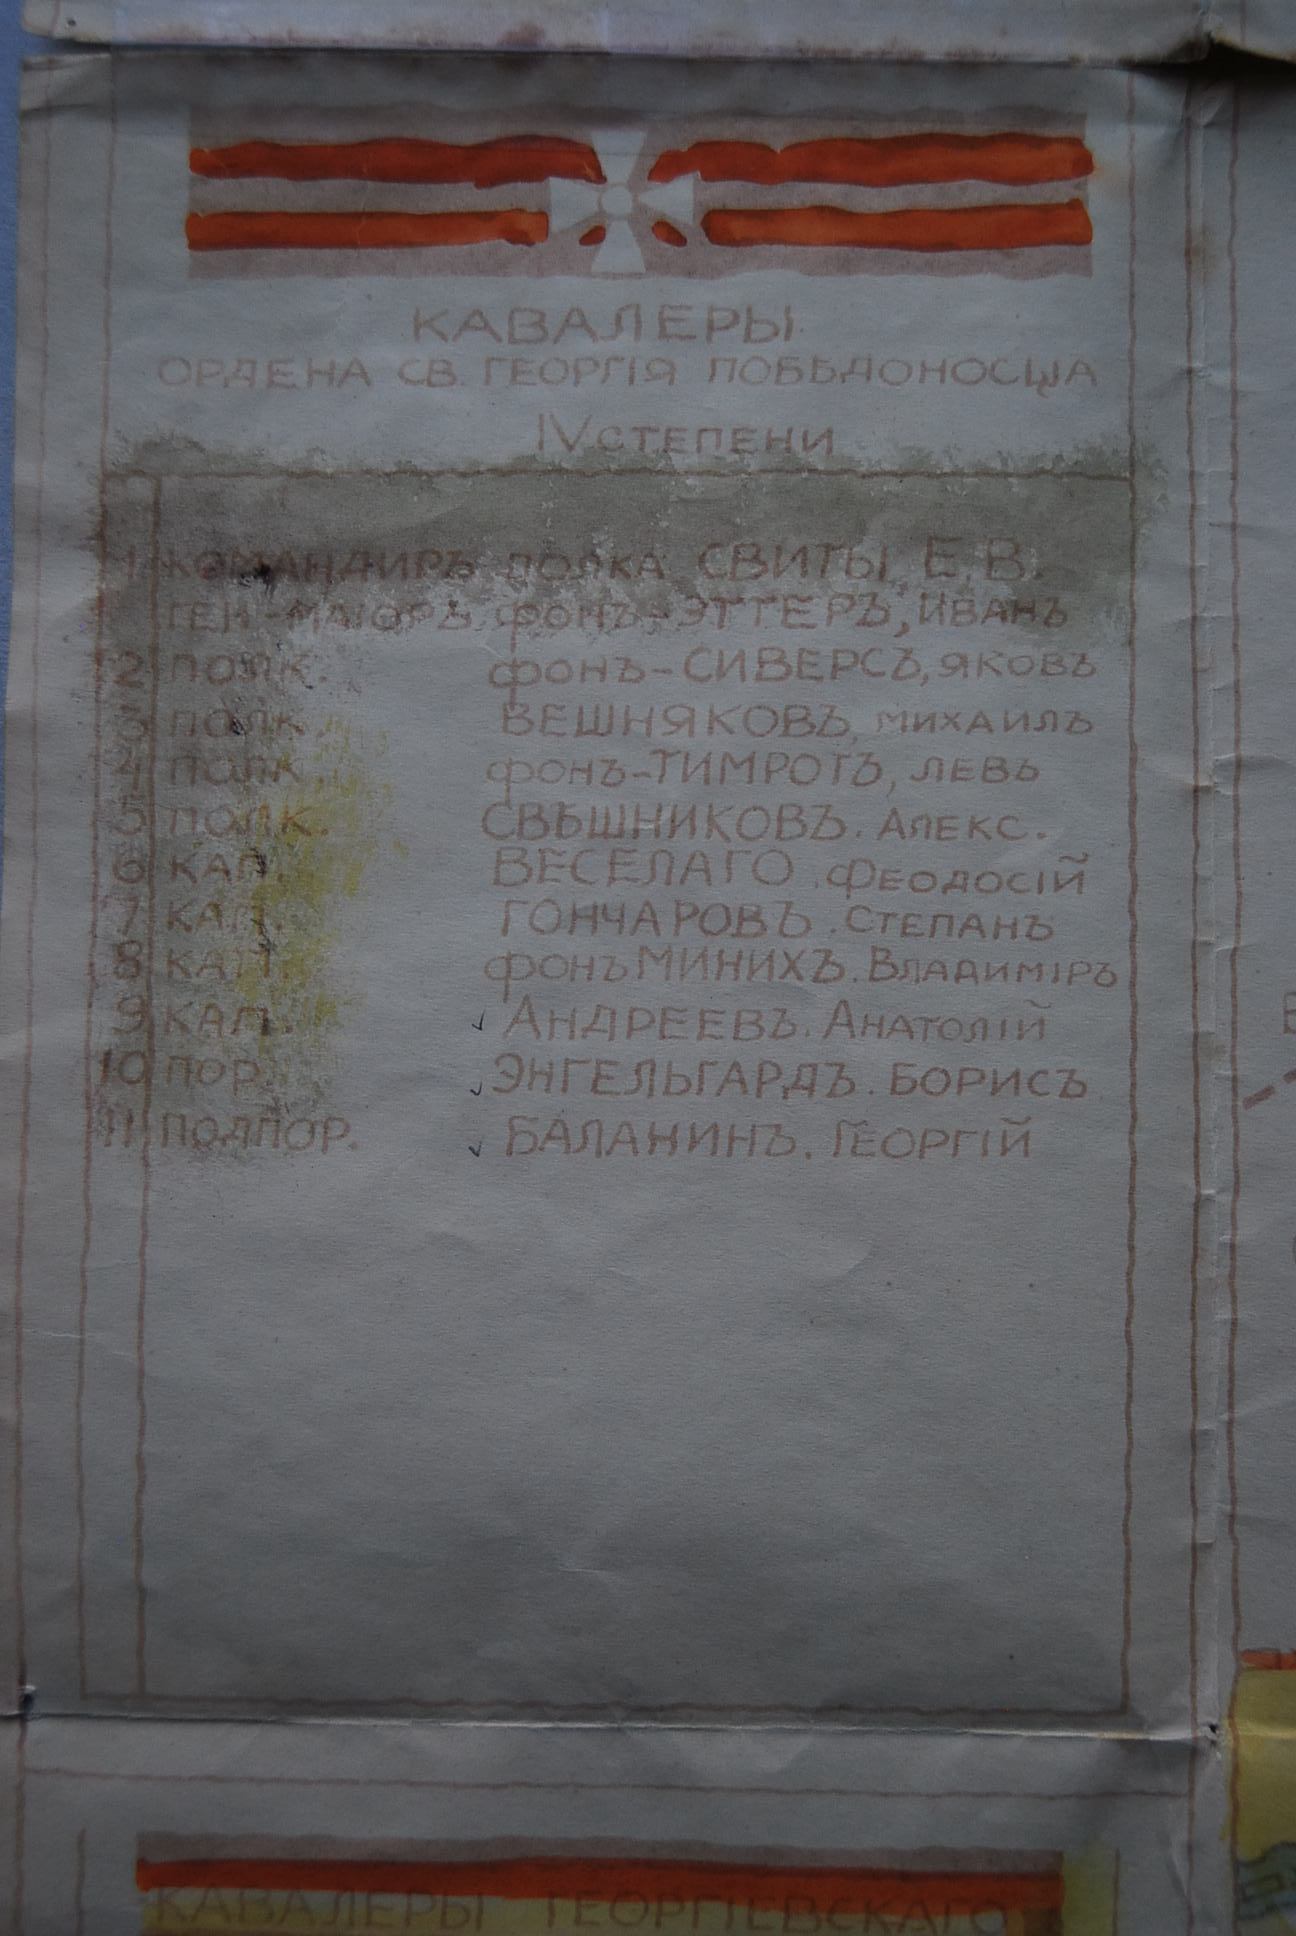 КАВАЛЕРЫ
ОРДЕНА СВ. ГЕОРГІЯ ПОБѢДОНОСЦА
IV СТЕПЕНИ
1 КОМАНДИРЪ ПОЛКА СВИТЫ Е.В.
ГЕН-МАІОРЪ фОНЪ-ЭТТЕРЪ, ИВАНЪ
2 ПОЛК. фОНЪ-СИВЕРСЪ, ЯКОВЪ
3 ПОЛК. ВЕШНЯКОВЪ, МИХАИЛЪ
4 ПОЛК. фОНЪ-ТИМРОТЪ, ЛЕВЪ
5 ПОЛК. СВѢШНИКОВЪ. АЛЕКС.
6 КАП. ВЕСЕЛАГО. ФЕОДОСІЙ
7 КАП. ГОНЧАРОВЪ. СТЕПАНЪ
8 КАП. фОНЪ МИНИХЪ. ВЛАДИМІРЪ
9 КАП. АНДРЕЕВЪ. АНАТОЛІЙ
10 ПОР. ЭНГЕЛЬГАРДЪ. БОРИСЪ
11 ПОДПОР. БАЛАНИНЪ. ГЕОРГІЙ
КАВАЛЕРЫ ГЕОРГІЕВСКАГО